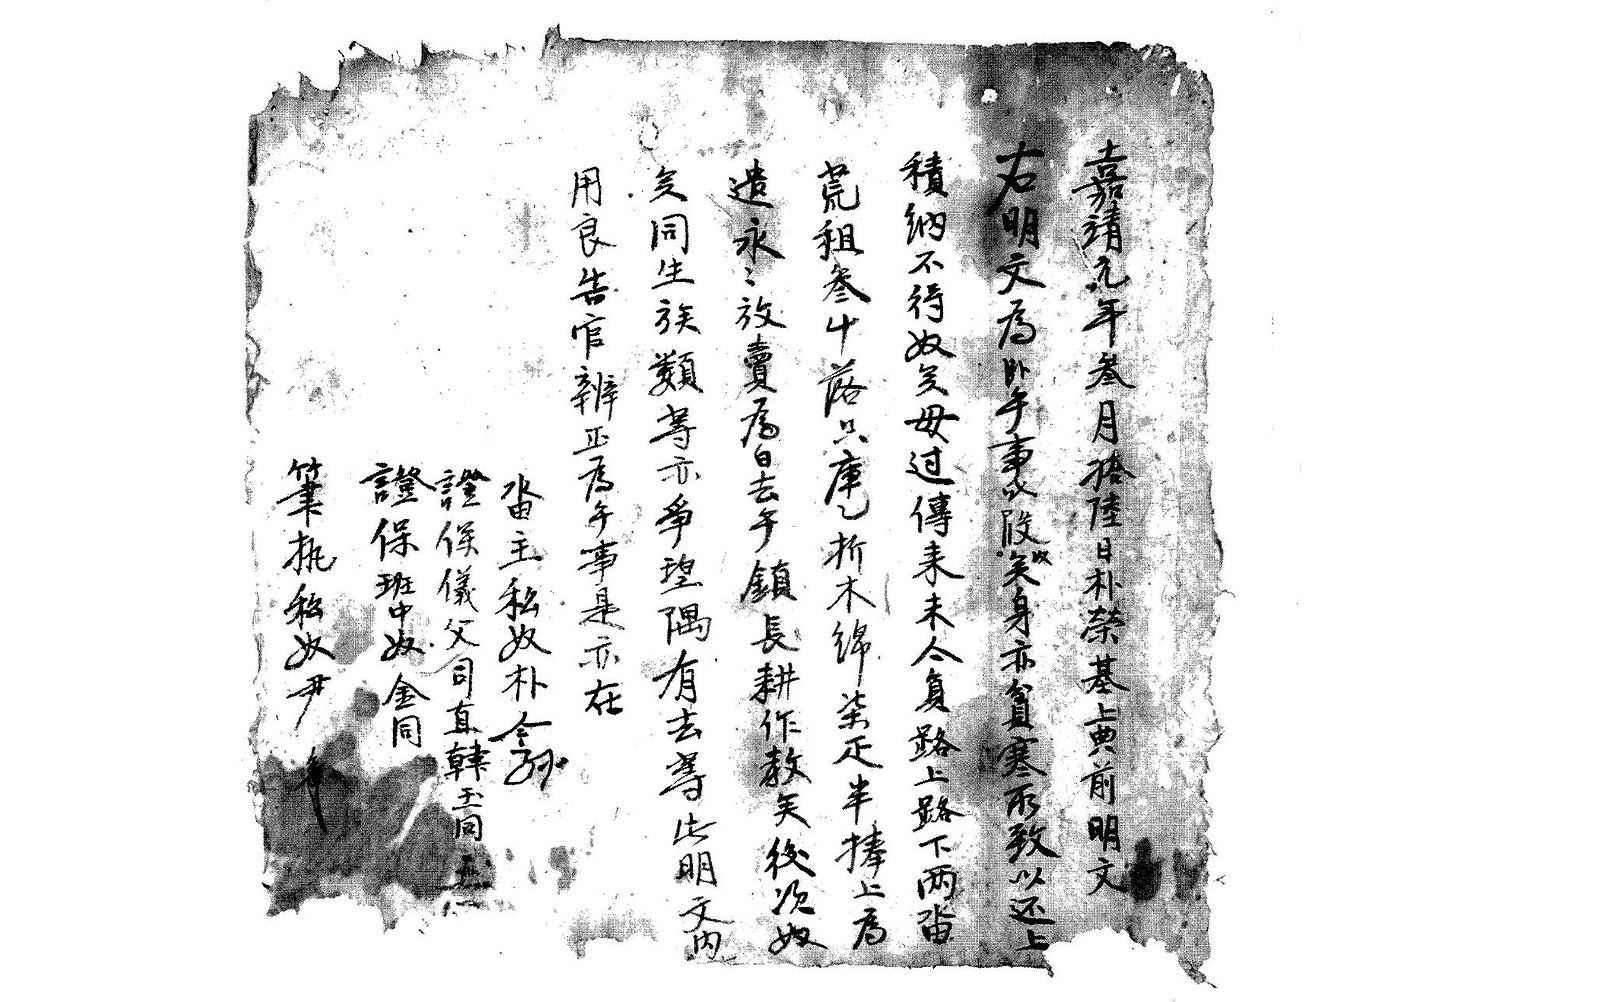 嘉靖元年叁月拾陸日朴榮基上典前明文
右明文爲臥乎事叱段矣身亦貧寒所致以还上
積納不得奴矣母过傳来未今負路上路下两畓
荒租叁十落只庫乙折木綿柒疋半捧上爲
遣永〻放賣爲白去乎鎮長耕作教矣後次奴
矣同生族類等亦爭望隅有去等此明文內
用良告官辨正爲乎事是亦在
畓主私奴朴今孫
證保儀父司直韓玉同
證保班中奴金同
筆執私奴尹